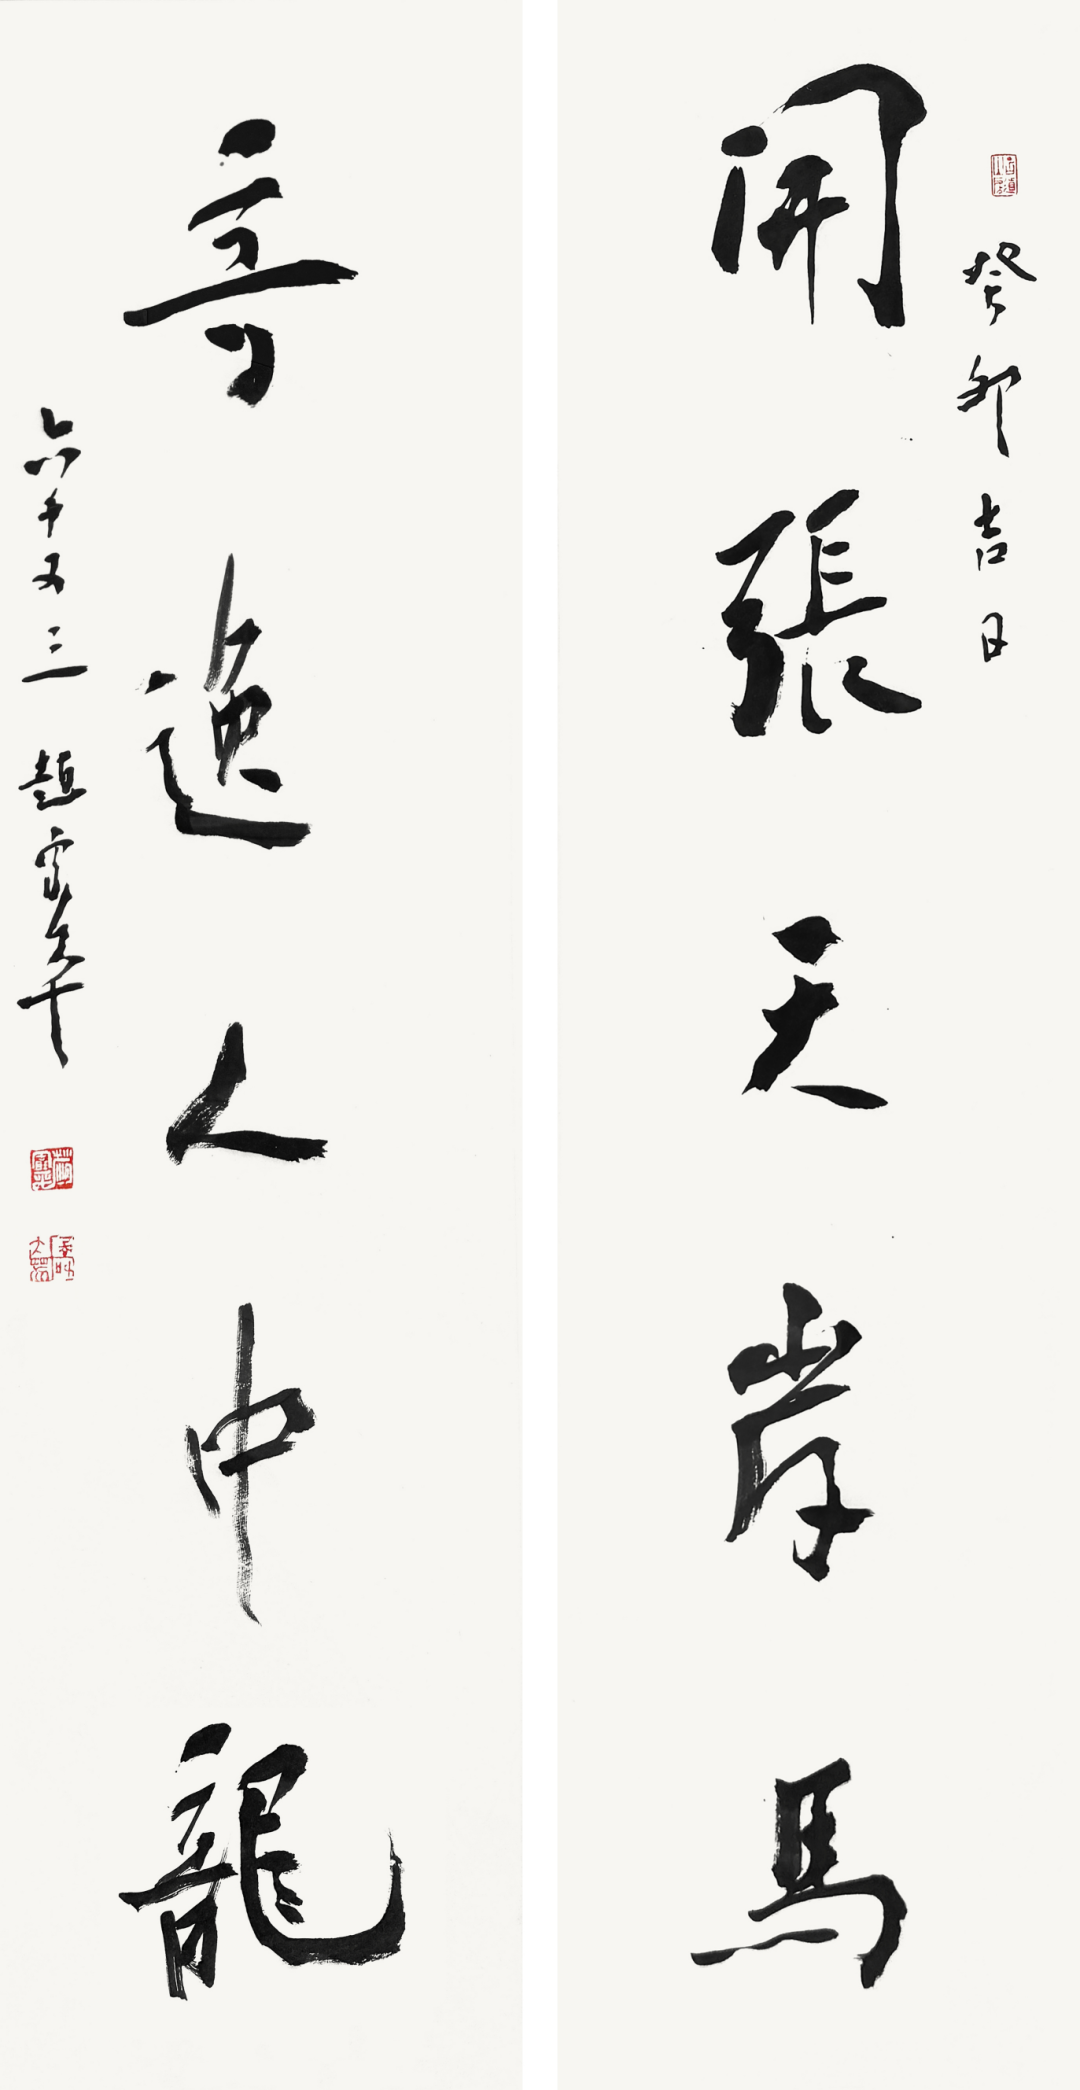 癸卯吉日
開張天岸馬
奇逸人中龍
六十又三 趙